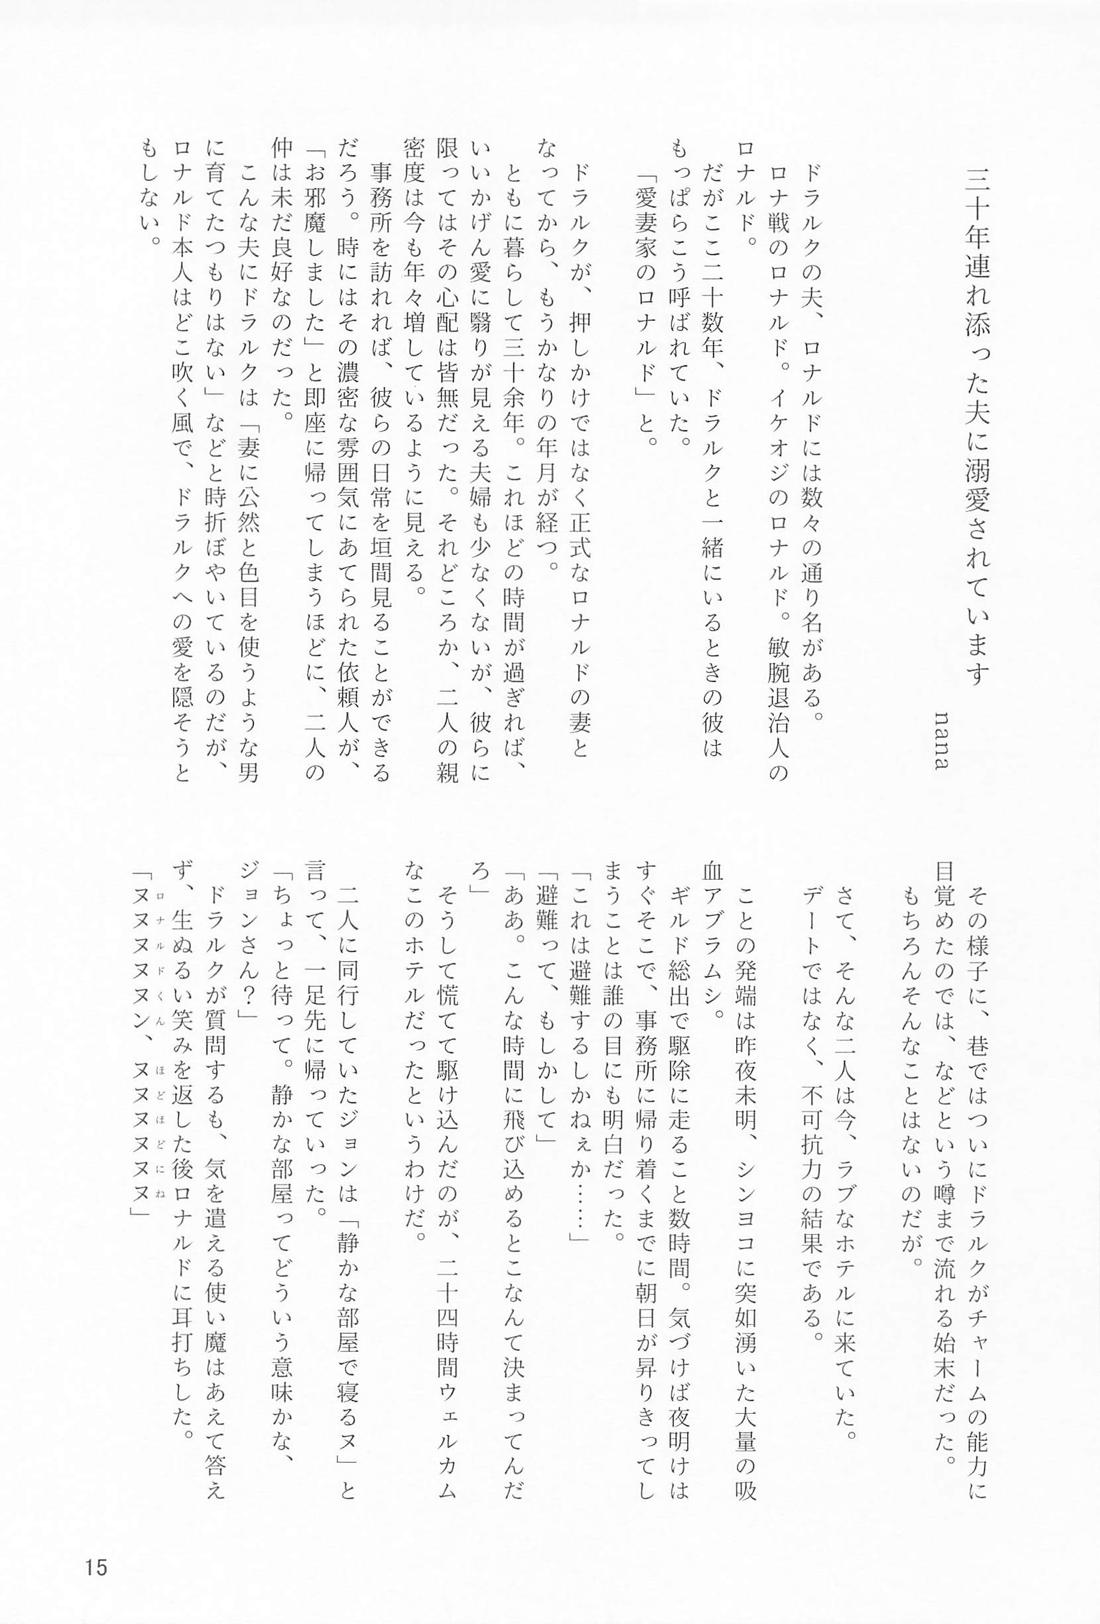 三十年連れ添った夫に溺愛されています
nana
ドラルクの夫、ロナルドには数々の通り名がある。
ロナ戦のロナルド。イケオジのロナルド。敏腕退治人の
ロナルド。
だがここ二十数年、ドラルクと一緒にいるときの彼は
もっぱらこう呼ばれていた。
「愛妻家のロナルド」と。
ドラルクが、押しかけではなく正式なロナルドの妻と
なってから、もうかなりの年月が経つ。
ともに暮らして三十余年。これほどの時間が過ぎれば、
いいかげん愛に翳りが見える夫婦も少なくないが、彼らに
限ってはその心配は皆無だった。それどころか、二人の親
密度は今も年々増しているように見える。
事務所を訪れれば、彼らの日常を垣間見ることができる
だろう。時にはその濃密な雰囲気にあてられた依頼人が、
「お邪魔しました」と即座に帰ってしまうほどに、二人の
仲は未だ良好なのだった。
こんな夫にドラルクは「妻に公然と色目を使うような男
に育てたつもりはない」などと時折ぼやいているのだが、
ロナルド本人はどこ吹く風で、ドラルクへの愛を隠そうと
もしない。
その様子に、巷ではついにドラルクがチャームの能力に
目覚めたのでは、などという噂まで流れる始末だった。
もちろんそんなことはないのだが。
さて、そんな二人は今、ラブなホテルに来ていた。
デートではなく、不可抗力の結果である。
ことの発端は昨夜未明、シンヨコに突如湧いた大量の吸
血アブラムシ。
ギルド総出で駆除に走ること数時間。気づけば夜明けは
すぐそこで、事務所に帰り着くまでに朝日が昇りきってし
まうことは誰の目にも明白だった。
「これは避難するしかねぇか……」
「避難って、もしかして」
「ああ。こんな時間に飛び込めるとこなんて決まってんだ
ろ」
そうして慌てて駆け込んだのが、二十四時間ウェルカム
なこのホテルだったというわけだ。
二人に同行していたジョンは「静かな部屋で寝るヌ」と
言って、一足先に帰っていった。
「ちょっと待って。静かな部屋ってどういう意味かな、
ジョンさん？」
ドラルクが質問するも、気を遣える使い魔はあえて答え
ず、生ぬるい笑みを返した後ロナルドに耳打ちした。
ロナルドくん ほどほどにね
「ヌヌヌヌヌン、ヌヌヌヌヌヌ」
15